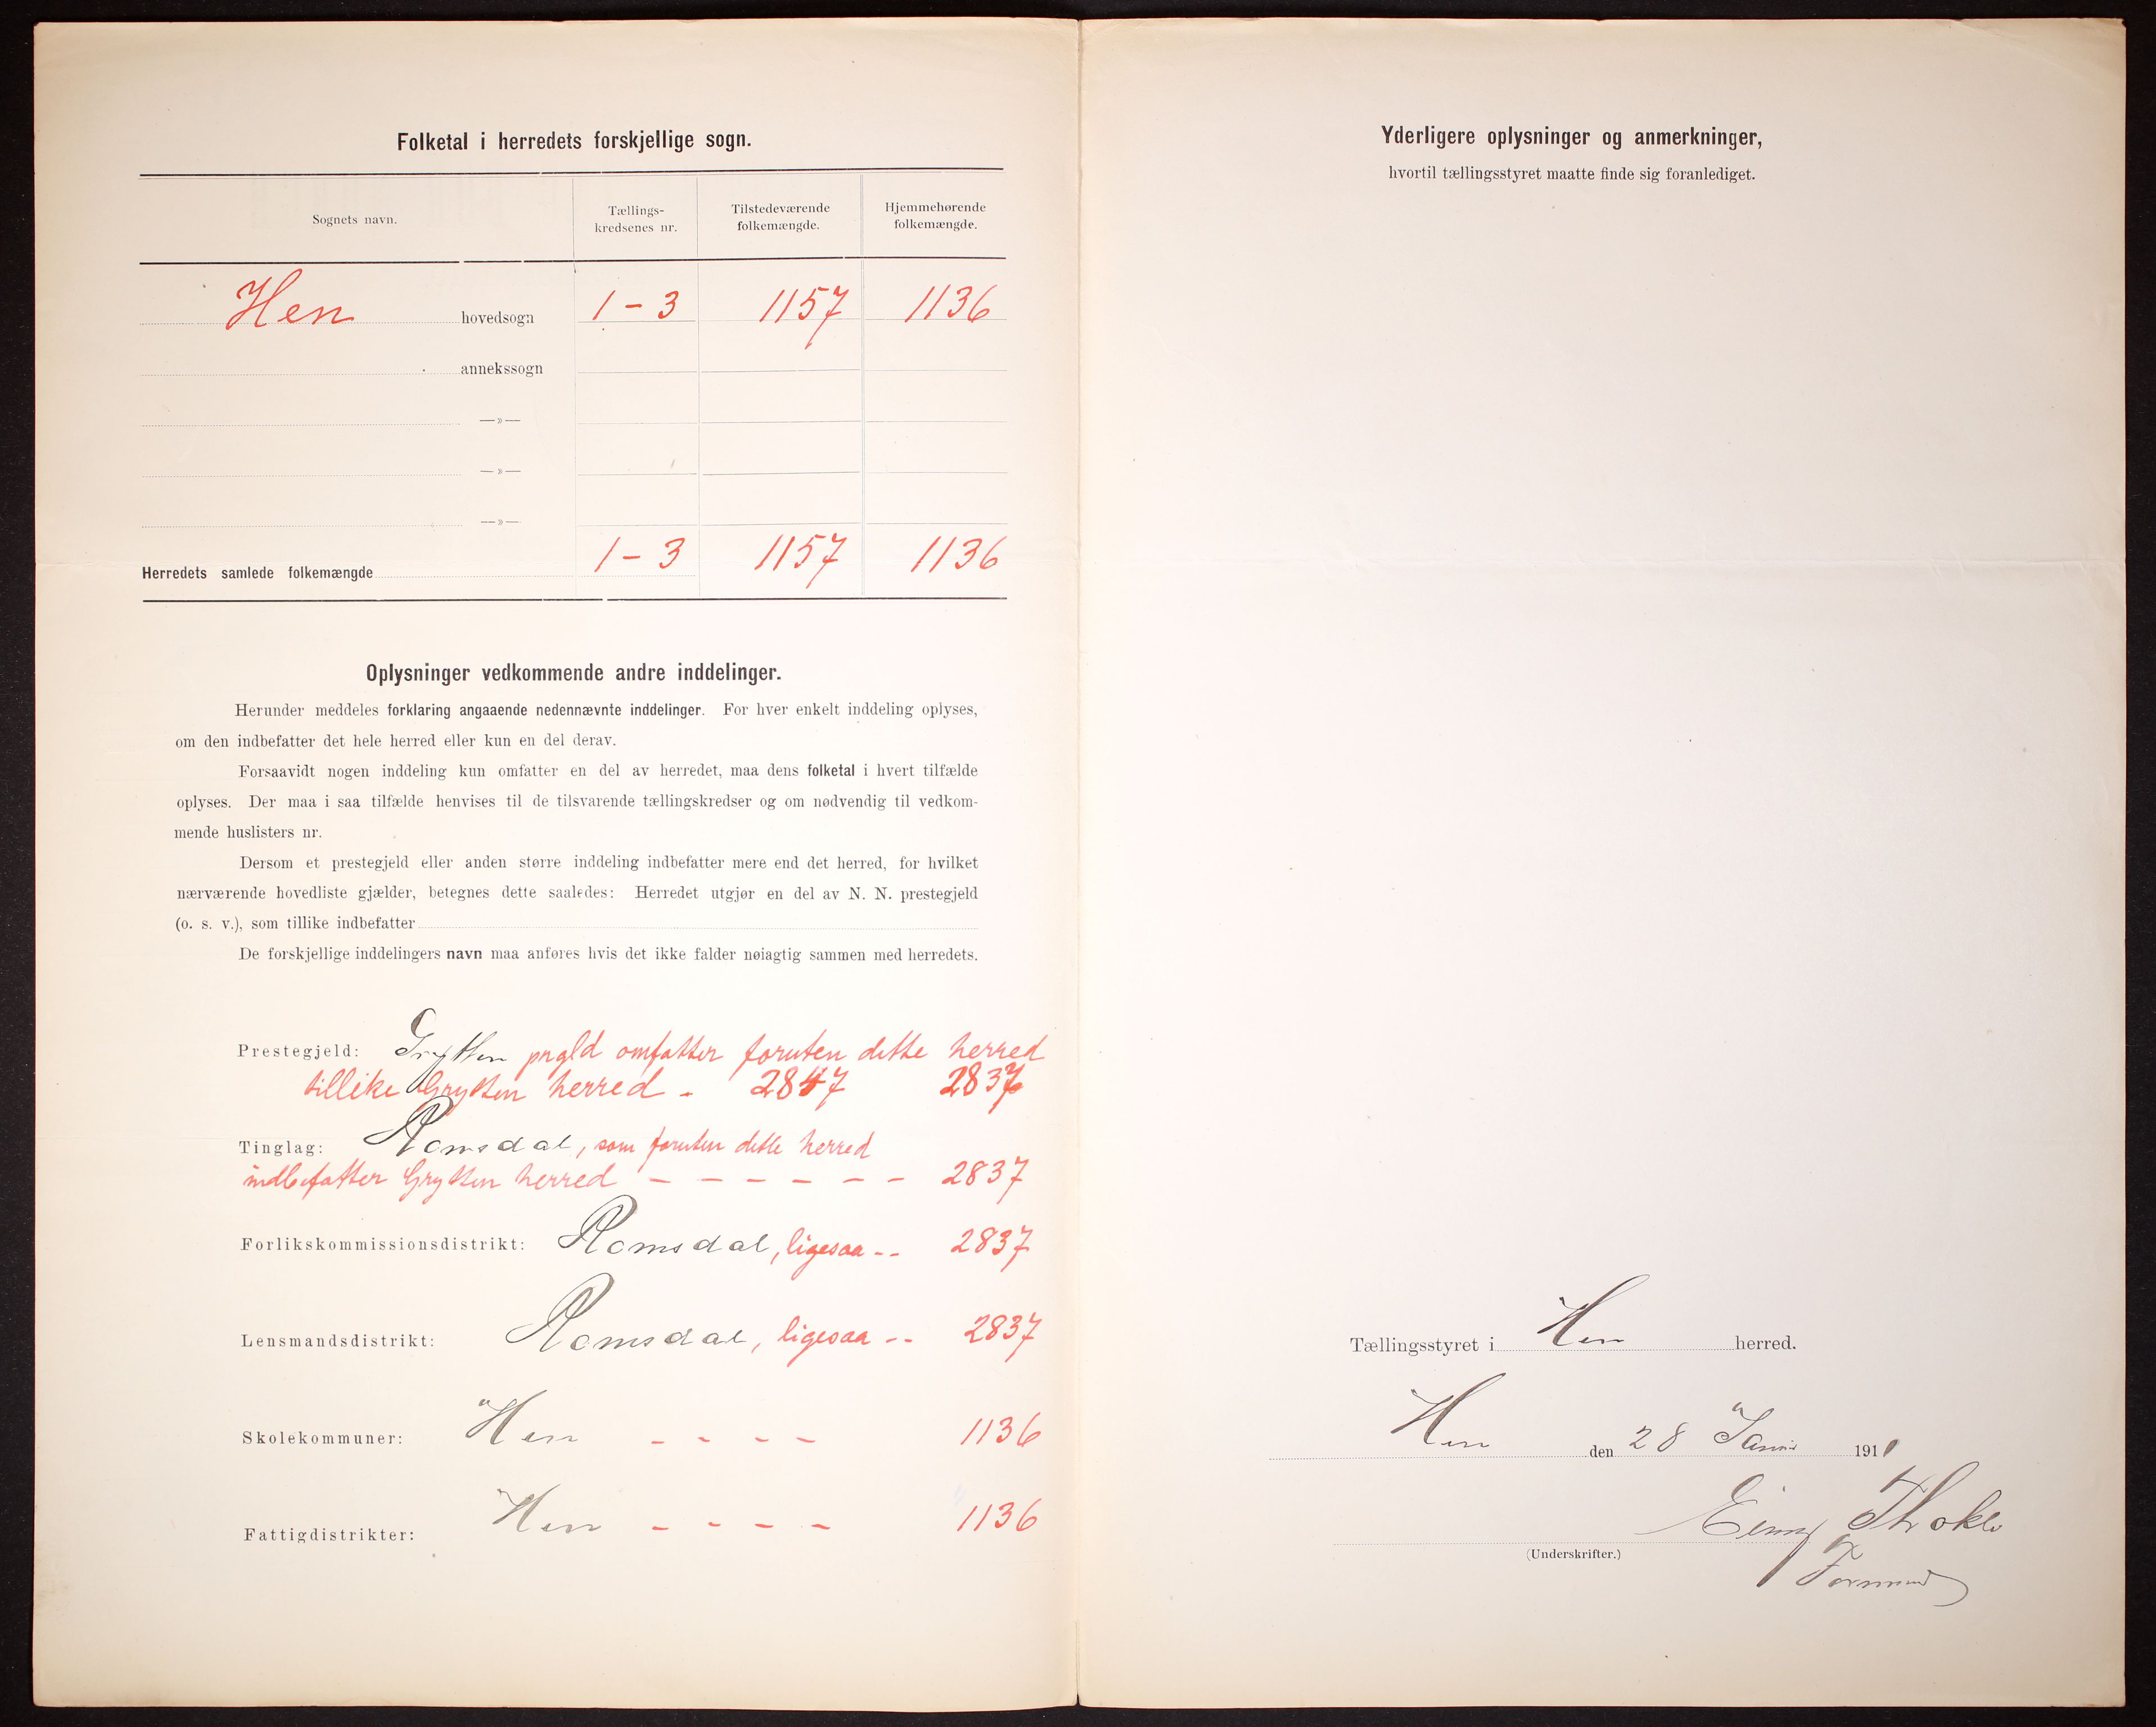 Folketal i herredets forskjellige sogn.
Sognets navn.
Tællings-
kredsenes nr.
Tilstedeværende
folkemængde.
Hjemmehørende
folkemængde.
Hen hovedsogn 1-3 1157 1136
annekssogn
—»—
—»—
—»—
Herredets samlede folkemængde 1-3 1157 1136
Oplysninger vedkommende andre inddelinger.
Herunder meddeles forklaring angaaende nedennævnte inddelinger. For hver enkelt inddeling oplyses,
om den indbefatter det hele herred eller kun en del derav.
Forsaavidt nogen inddeling kun omfatter en del av herredet, maa dens folketal i hvert tilfælde
oplyses. Der maa i saa tilfælde henvises til de tilsvarende tællingskredser og om nødvendig til vedkom-
mende huslisters nr.
Dersom et prestegjeld eller anden større inddeling indbefatter mere end det herred, for hvilket
nærværende hovedliste gjælder, betegnes dette saaledes: Herredet utgjør en del av N. N. prestegjeld
(o. s. v.), som tillike indbefatter
De forskjellige inddelingers navn maa anføres hvis det ikke falder nøiagtig sammen med herredets.
Prestegjeld: Grytten prgld omfatter foruten dette herred
tillike Grytten herred. 2847 2837
Tinglag: Romsdal, som foruten dette herred
indbefatter Grytten herred – – – – – – 2837
Forlikskommissionsdistrikt: Romsdal, ligesaa -- 2837
Lensmandsdistrikt: Romsdal, ligesaa -- 2837
Skolekommuner: Hen - - - - 1136
Fattigdistrikter: Hen - - - - 1136
Yderligere oplysninger og anmerkninger,
hvortil tællingsstyret maatte finde sig foranlediget.
Tællingsstyret i Hen herred.
Hen den 28 Januar 1911
Einar
(Underskrifter.)
Formand